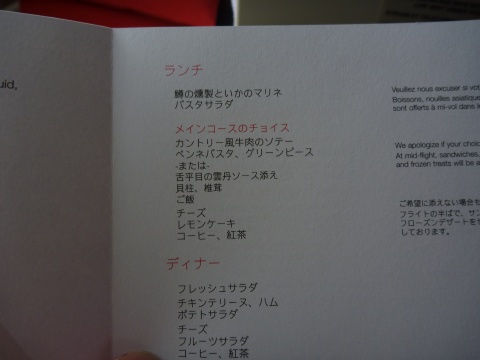 uid,
ランチ
鱒の燻製といかのマリネ
パスタサラダ
メインコースのチョイス
カントリー風牛肉のソテー
ペンネパスタ、グリーンピース
-または-
舌平目の雲丹ソース添え
貝柱、椎茸
ご飯
チーズ
レモンケーキ
コーヒー、紅茶
ディナー
フレッシュサラダ
チキンテリーヌ、ハム
ポテトサラダ
チーズ
フルーツサラダ
コーヒー、紅茶
Veuillez nous excuser si vot
Boissons, nouilles asiatique
sont offerts à mi-vol dans l
We apologize if your choic
At mid-flight, sandwiches,
and frozen treats will be a
ご希望に添えない場合も
フライトの半ばで、サン
フローズンデザートをセ
しております。